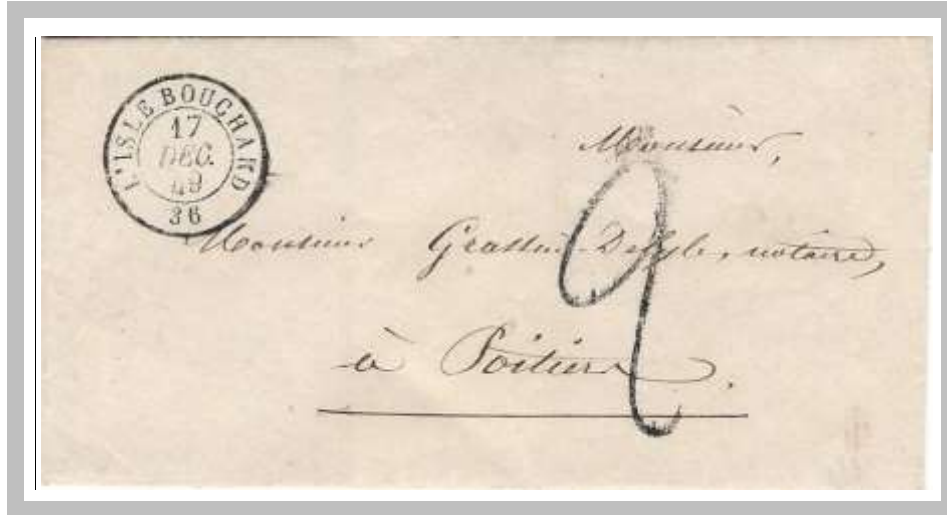 L'ISLE BOUCHARD
17
DEC.
49
36
Monsieur,
Monsieur notaire,
à Poitiers.
2